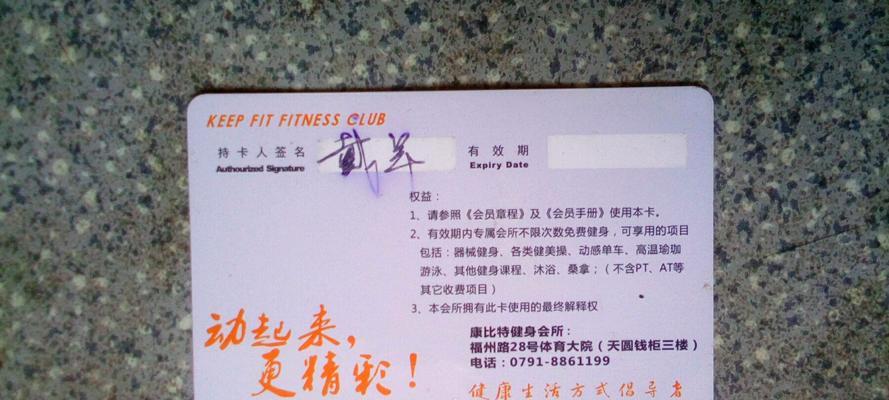 KEEP FIT FITNESS CLUB
持卡人签名
Authourized Signature
有效期
Expiry Date
权益：
1、请参照《会员章程》及《会员手册》使用本卡。
2、有效期内专属会所不限次数免费健身，可享用的项目
包括：器械健身、各类健美操、动感单车、高温瑜珈
游泳、其他健身课程、沐浴、桑拿；（不含PT、AT等
其它收费项目）
3、本会所拥有此卡使用的最终解释权
动起来，
更精彩！
康比特健身会所：
福州路28号体育大院（天圆钱柜三楼）
电话：0791-8861199
健康生活方式倡导者